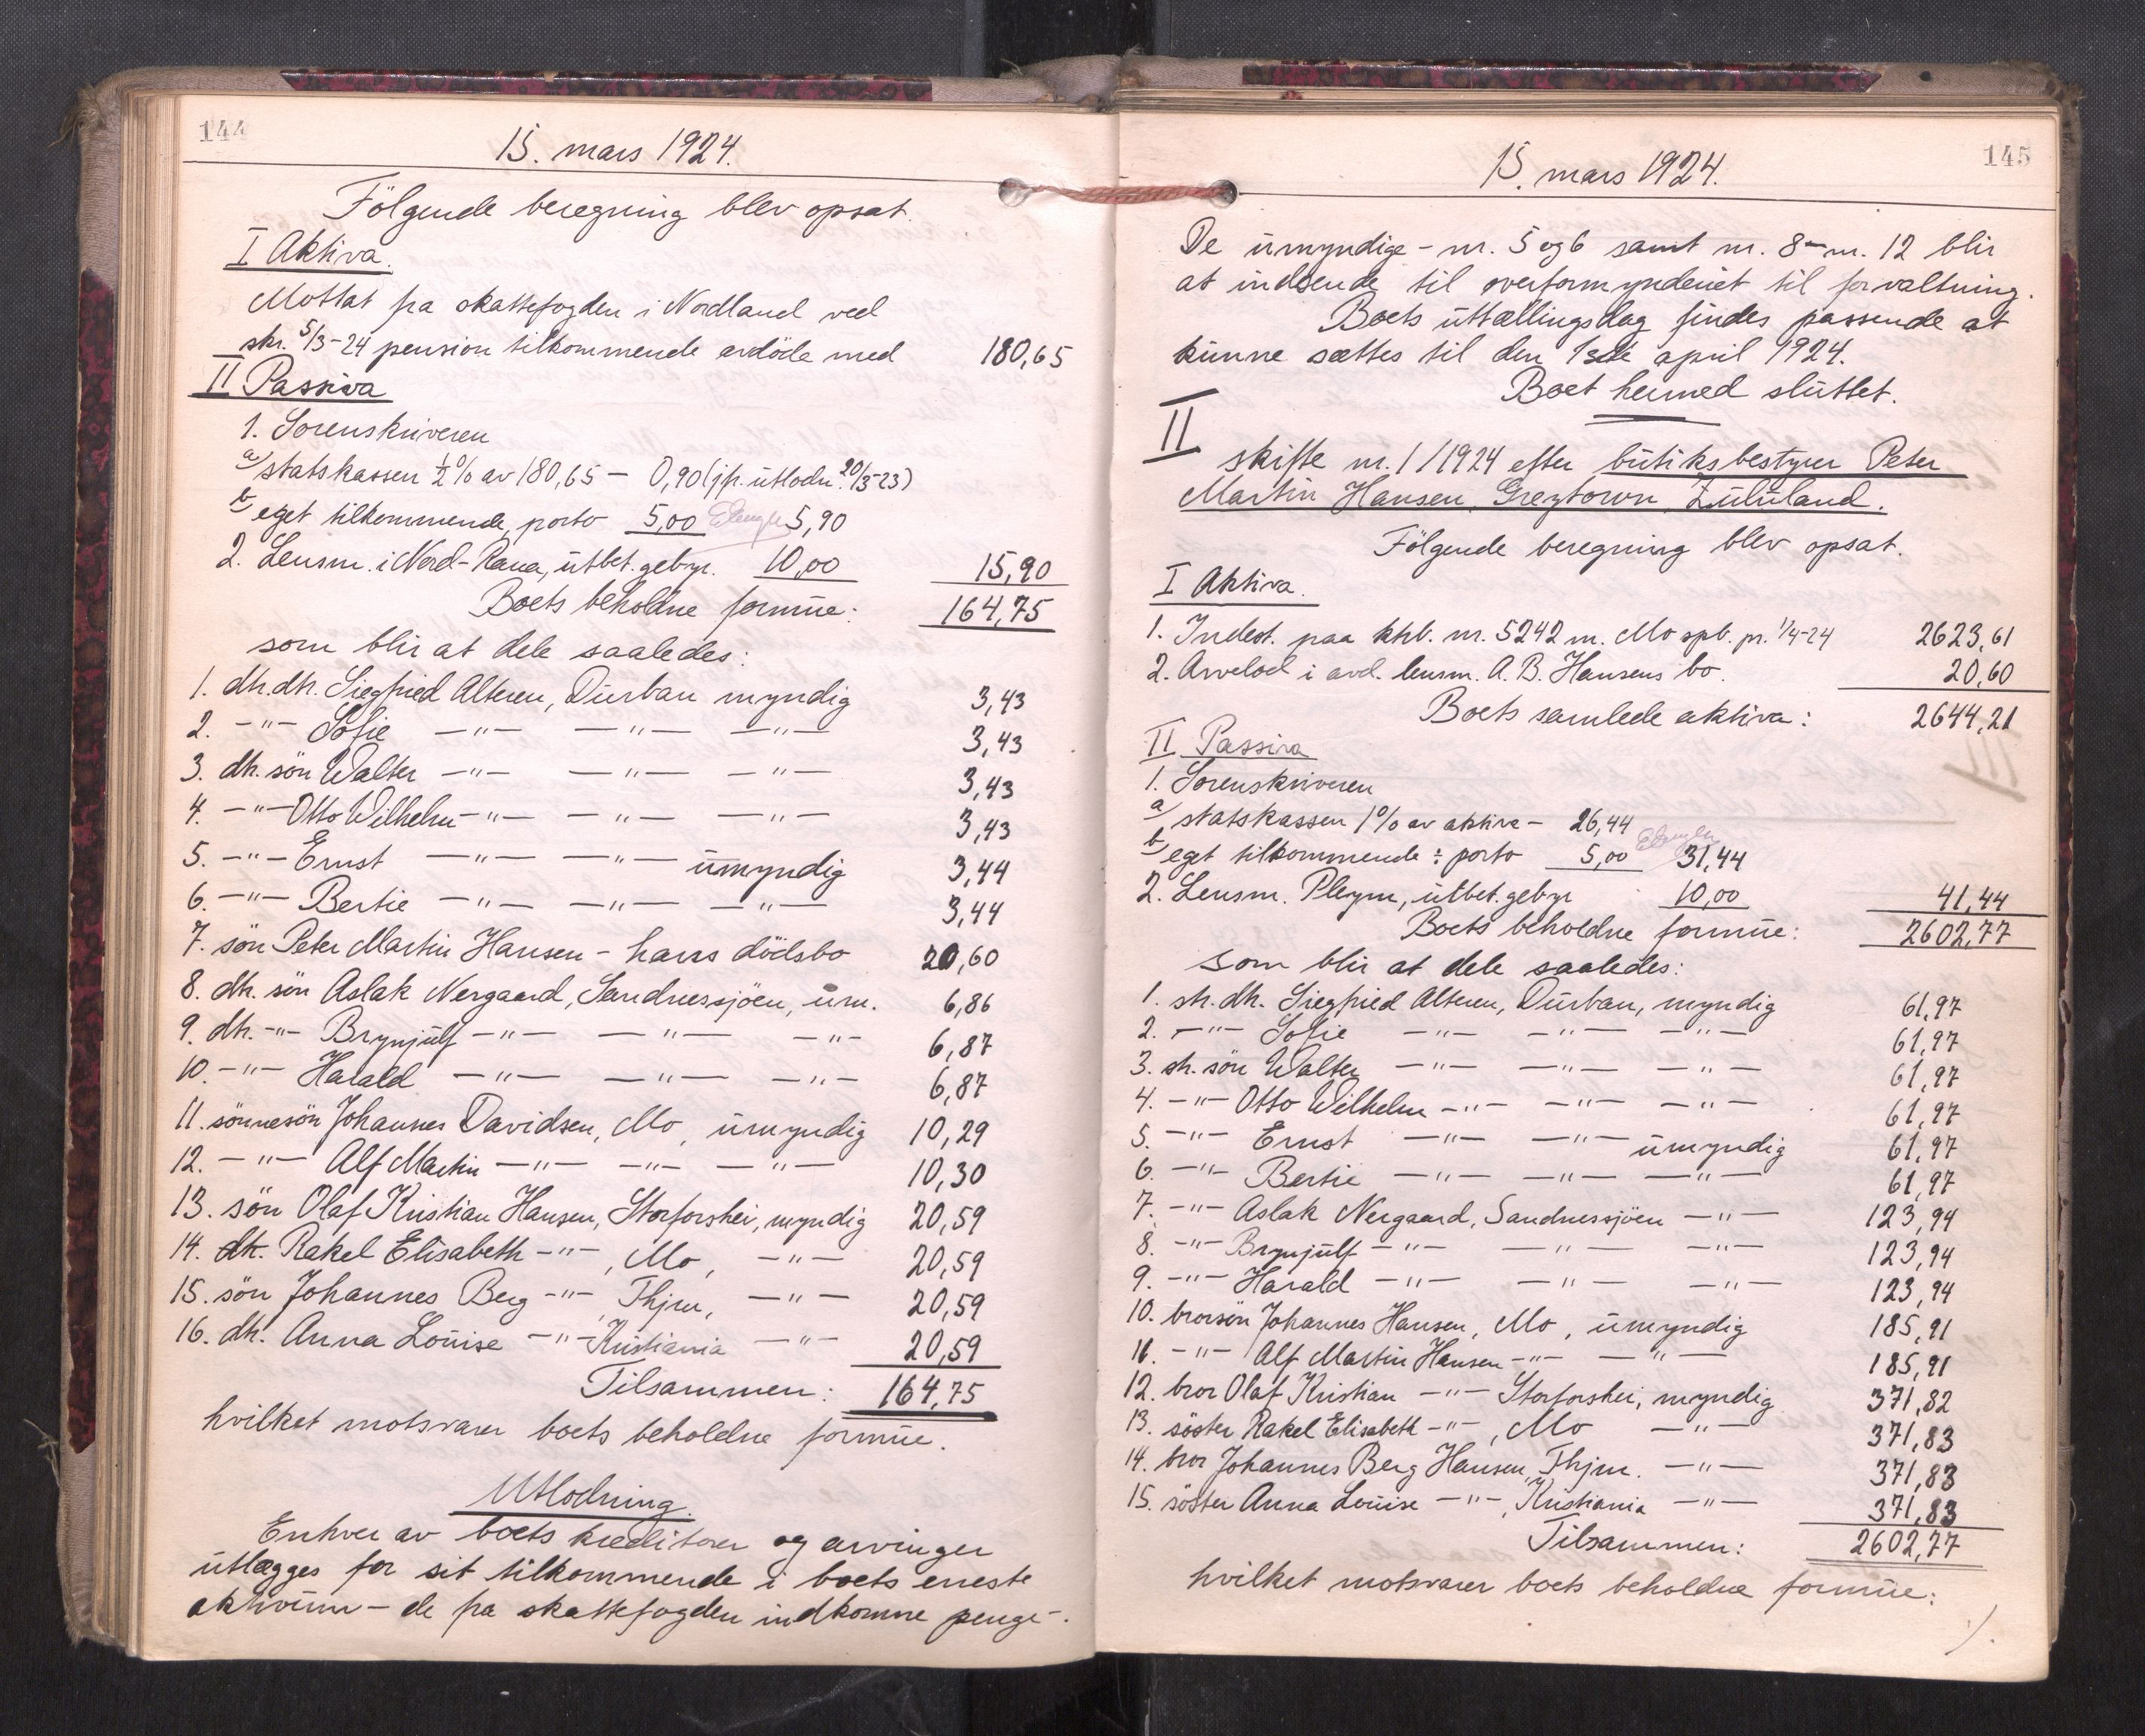 144
15. mars 1924.
Følgende beregning blev opsat.
I Aktiva.
Mottat fra skattefogden i Nordland ved
skr. 5/3-24 pension tilkommende avdøde med 180,65
II Passiva
1. Sorenskriveren
a) statskassen ½ % av 180,65 — 0,90 (jfr. utlodn. 20/3-23)
b) eget tilkommende, porto 5,00 5,90
2. Lensm. i Nord-Rana, utbet. gebyr. 10,00 15,90
Boets beholdne formue: 164,75
som blir at dele saaledes:
1. dh. dh. Siegfried Alteren, Durban myndig 3,43
2. —"— Sofie —"— —"— —"— 3,43
3. dh. søn Walter —"— —"— —"— 3,43
4. —"— Otto Wilhelm —"— —"— —"— 3,43
5. —"— Ernst —"— —"— umyndig 3,44
6. —"— Bertie —"— —"— —"— 3,44
7. søn Peter Martin Hansen - hans dødsbo 20,60
8. dh. søn Aslak Nergaard, Sandnessjøen, um. 6,86
9. dh. —"— Brynjulf —"— —"— —"— 6,87
10. —"— Harald —"— —"— —"— 6,87
11. sønnesøn Johannes Davidsen, Mo, umyndig 10,29
12. —"— Alf Martin —"— —"— —"— 10,30
13. søn Olaf Kristian Hansen, Storforshei, myndig 20,59
14. dh. Rakel Elisabeth —"—, Mo, —"— 20,59
15. søn Johannes Berg —"— Thjm, —"— 20,59
16. dh. Anna Louise —"— Kristiania —"— 20,59
Tilsammen: 164,75
hvilket motsvarer boets beholdne formue.
Utlodning.
Enhver av boets kreditorer og arvinger
utlægges for sit tilkommende i boets eneste
aktivum — de fra skattefogden indkomne penge -.
145
15. mars 1924.
De umyndige - nr. 5 og 6 samt nr. 8 - nr. 12 blir
at indsende til overformynderiet til forvaltning.
Boets uttællingsdag findes passende at
kunne sættes til den 1ste april 1924.
Boet hermed sluttet.
II
skifte nr. 1/1924 efter butiksbestyrer Peter
Martin Hansen, Greytown, Zululand.
Følgende beregning blev opsat.
I Aktiva.
1. Indest. paa ktrb. nr. 5242 m. Mo spb. pr. 1/4-24 2623,61
2. Arvelod i avd. lensm. A. B. Hansens bo. 20,60
Boets samlede aktiva: 2644,21
II Passiva
1. Sorenskriveren
a) statskassen 1 % av aktiva — 26,44
b) eget tilkommende : porto 5,00 31,44
2. Lensm. Pleym, utbet. gebyr 10,00 41,44
Boets beholdne formue: 2602,77
som blir at dele saaledes:
1. sh. dh. Siegfried Alteren, Durban, myndig 61,97
2. —"— Sofie —"— —"— —"— 61,97
3. sh. søn Walter —"— —"— —"— 61,97
4. —"— Otto Wilhelm —"— —"— —"— 61,97
5. —"— Ernst —"— —"— umyndig 61,97
6. —"— Bertie —"— —"— —"— 61,97
7. —"— Aslak Nergaard, Sandnessjøen —"— 123,94
8. —"— Brynjulf —"— —"— —"— 123,94
9. —"— Harald —"— —"— —"— 123,94
10. brorsøn Johannes Hansen, Mo, umyndig 185,91
11. —"— Alf Martin Hansen —"— —"— 185,91
12. bror Olaf Kristian —"— Storforshei, myndig 371,82
13. søster Rakel Elisabeth —"—, Mo —"— 371,83
14. bror Johannes Berg Hansen, Thjm. —"— 371,83
15. søster Anna Louise —"—, Kristiania —"— 371,83
Tilsammen: 2602,77
hvilket motsvarer boets beholdne formue: